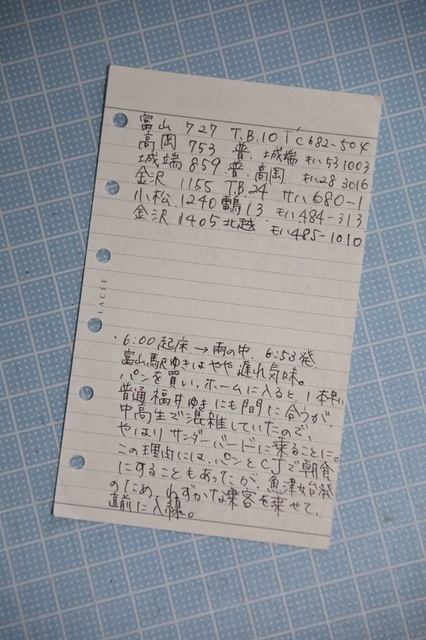 富山 727 T.B.10 1'C682-504
高岡 753 普. 城端 キハ531003
城端 859. 普. 高岡 キハ28 3016
金沢 1155 T.B.24 サハ680-1
小松 1240 雷鳥13. モハ484-313
金沢 1405 北越 モハ485-1010
LACEE
・6:00起床→雨の中、6:53発
富山駅ゆきはやや遅れ気味。
パンを買い、ホームに入ると、1本早い
普通福井ゆきにも間に合うが、
中高生で混雑していたので、
やはりサンダーバードに乗ることに。
この理由には、パンとCJで朝食
にすることもあったが、魚津始発
のため、わずかな乗客を乗せて、
直前に入線。